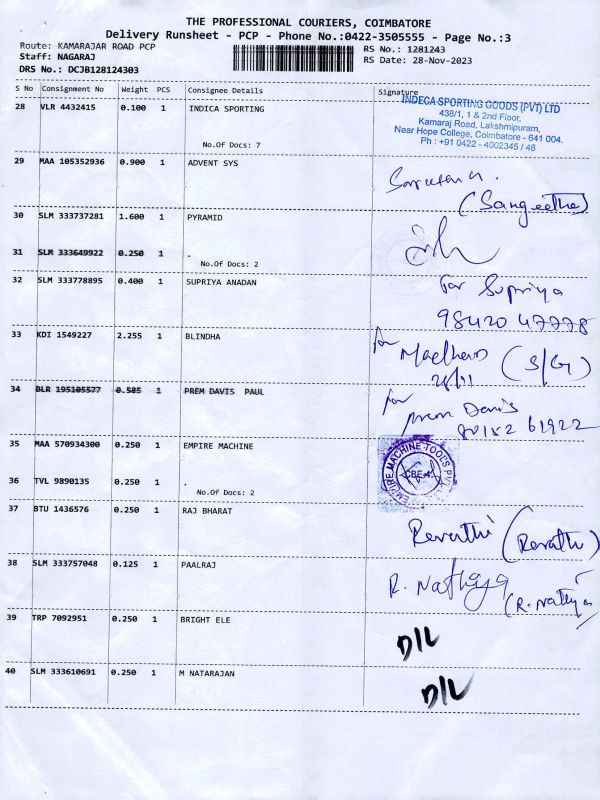 THE PROFESSIONAL COURIERS, COIMBATORE
Delivery Runsheet - PCP - Phone No.:0422-3505555 - Page No.:3
Route: KAMARAJAR ROAD PCP RS No.: 1281243
Staff: NAGARAJ RS Date: 28-Nov-2023
DRS No.: DCJB128124303
S No Consignment No Weight PCS Consignee Details Signature
28 VLR 4432415 0.100 1 INDICA SPORTING
INDECA SPORTING GOODS (PVT) LTD
438/1, 1 & 2nd Floor,
Kamaraj Road, Lakshmipuram,
Near Hope College, Coimbatore - 641 004.
Ph : +91 0422 - 4002345 / 46
No.Of Docs: 7
29 MAA 105352936 0.900 1 ADVENT SYS
(Sangeetha)
30 SLM 333737281 1.600 1 PYRAMID
31 SLM 333649922 0.250 1 .
No.Of Docs: 2
32 SLM 333778895 0.400 1 SUPRIYA ANADAN
For Supriya
98420 47778
33 KDI 1549227 2.255 1 BLINDHA
for
(S/G)
28/11
34 BLR 195105577 0.585 1 PREM DAVIS PAUL
for
prem Davis
61922
35 MAA 570934300 0.250 1 EMPIRE MACHINE
EMPIRE MACHINE TOOLS PVT
CBE-4
36 TVL 9890135 0.250 1 .
No.Of Docs: 2
37 BTU 1436576 0.250 1 RAJ BHARAT
Revathi (Revathi)
38 SLM 333757048 0.125 1 PAALRAJ
R. Nathiya
(R. Nathiya)
39 TRP 7092951 0.250 1 BRIGHT ELE
D/L
40 SLM 333610691 0.250 1 M NATARAJAN
D/L